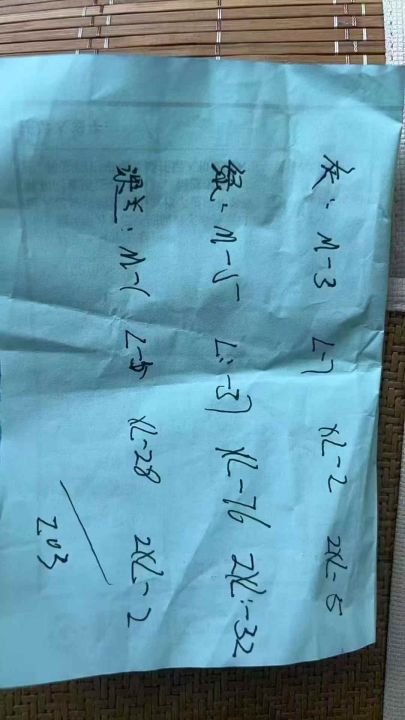 灰: M-3 L-7 XL-2 2XL-5
绿: M-5 L:-37 XL-76 2XL:-32
M-1 L-5 XL-28 2XL-2
203